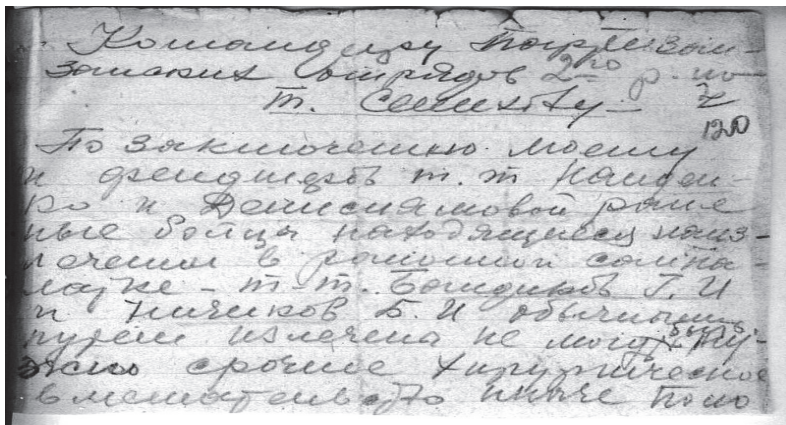 Командиру Партизан-
занских отрядов 2го р-на
т. Селихову
120
По заключению моему
и фельдшеров т.т Найден-
ко и Денислямовой ране
ные бойцы находящиеся на из-
лечении в районной санпа-
латке - т-т. Бандиков Г. И
и Ничиков Б. И обычным
путем излечена не могут быть. Ну-
жно срочное хирургическое
вмешательство иначе поло